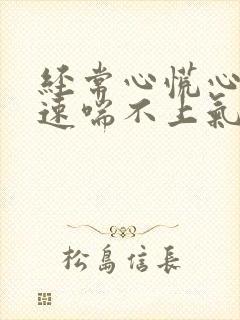 经常心慌心
速喘不上氣
松島信長